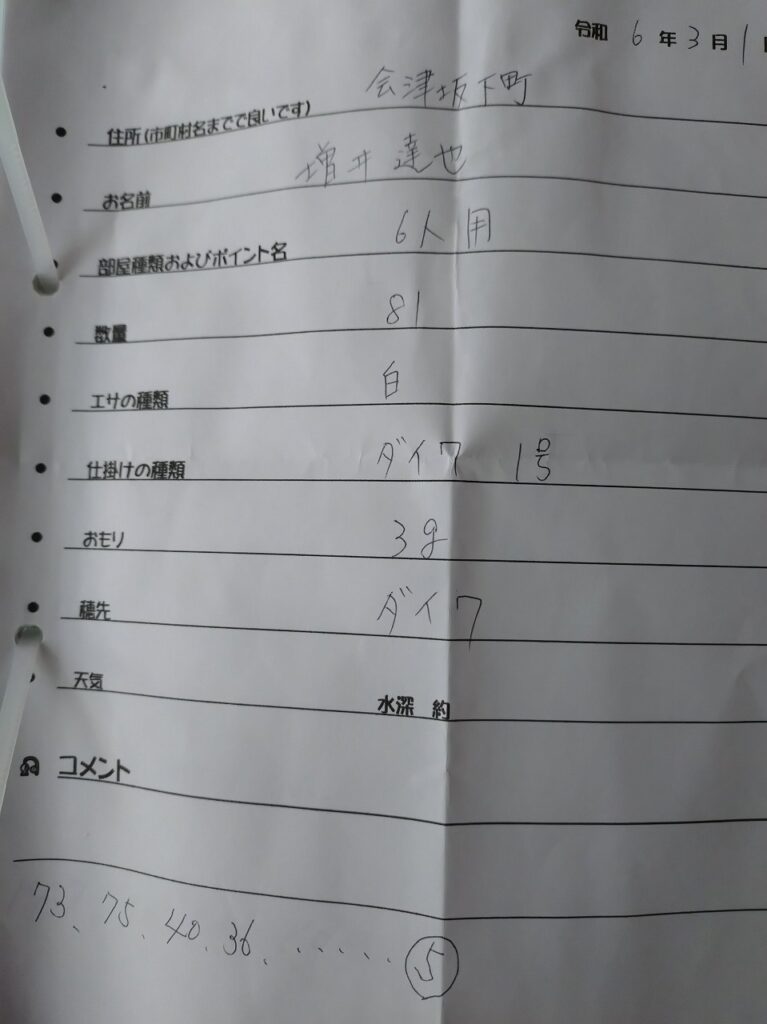 令和 6 年 3 月 1 日
住所(市町村名までで良いです) 会津坂下町
お名前 増井達也
部屋種類およびポイント名 6人用
数量 81
エサの種類 白
仕掛けの種類 ダイワ 1号
おもり 3g
穂先 ダイワ
天気 水深 約
コメント
73、75、40、36、・・・・・⑤